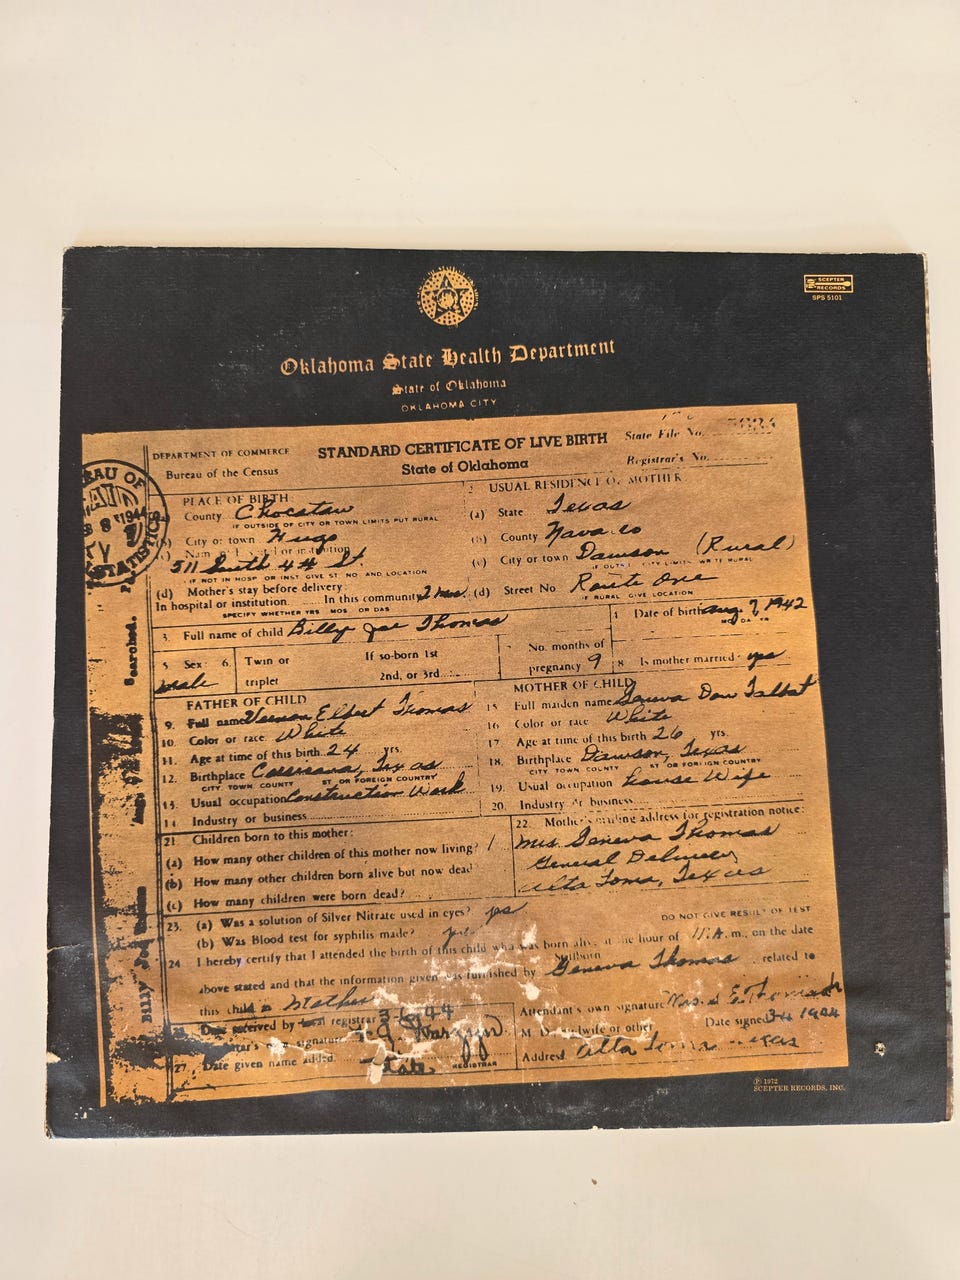 SCEPTER
RECORDS
SPS 5101
Oklahoma State Health Department
State of Oklahoma
OKLAHOMA CITY
DEPARTMENT OF COMMERCE
Bureau of the Census
STANDARD CERTIFICATE OF LIVE BIRTH
State of Oklahoma
State File No.
Registrar's No.
PLACE OF BIRTH:
County Choctaw
IF OUTSIDE OF CITY OR TOWN LIMITS PUT RURAL
City or town Hugo
511 South 4th St.
IF NOT IN HOSP OR INST. GIVE ST. NO. AND LOCATION
(d) Mother's stay before delivery:
In hospital or institution In this community 2 mos.
SPECIFY WHETHER YRS MOS OR DAS
2 USUAL RESIDENCE OF MOTHER
(a) State Texas
(b) County Navarro
(c) City or town Dawson (Rural)
(d) Street No Route One
IF RURAL GIVE LOCATION
3. Full name of child Billy Joe Thomas
4 Date of birth Aug. 7, 1942
MO DA YR
5 Sex:
male
6. Twin or
triplet
If so-born 1st
2nd, or 3rd
7 No. months of
pregnancy 9
8 Is mother married yes
FATHER OF CHILD
9. Full name Vernon Elbert Thomas
10. Color or race White
11. Age at time of this birth 24 yrs.
12. Birthplace Corsicana, Texas
CITY TOWN COUNTY ST OR FOREIGN COUNTRY
13. Usual occupation Construction Work
14. Industry or business
MOTHER OF CHILD
15 Full maiden name Geneva Dow Talbot
16 Color or race White
17. Age at time of this birth 26 yrs.
18. Birthplace Dawson, Texas
CITY TOWN COUNTY ST OR FOREIGN COUNTRY
19. Usual occupation House Wife
20. Industry or business
21. Children born to this mother:
(a) How many other children of this mother now living? 1
(b) How many other children born alive but now dead
(c) How many children were born dead?
22. Mother's mailing address for registration notice:
Mrs Geneva Thomas
General Delivery
Alta Loma, Texas
23. (a) Was a solution of Silver Nitrate used in eyes? yes
(b) Was Blood test for syphilis made? yes
DO NOT GIVE RESULT OF TEST
24 I hereby certify that I attended the birth of this child who was born alive at the hour of 11 A. m., on the date
Stillborn
above stated and that the information given was furnished by Geneva Thomas related to
this child as Mother
Attendant's own signature
M. D. midwife or other Date signed
Address Alta Loma Texas
Date received by local registrar 3-6-44
signature
REGISTRAR
27 Date given name added
BUREAU OF
STATISTICS
Searched.
Billy Joe
℗ 1972
SCEPTER RECORDS, INC.